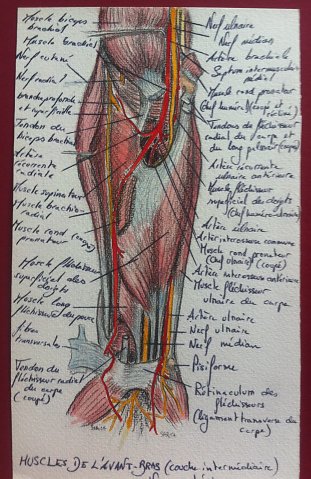 Muscle biceps
brachial
Muscle brachial
Nerf cutané
Nerf radial
branche profonde
et superficielle
Tendon du
biceps brachial
Artère
récurrente
radiale
Muscle supinateur
Muscle brachio-
radial
Muscle rond (coupé)
pronateur
Muscle fléchisseur
superficiel des
doigts
Muscle long
fléchisseur du pouce
fibres
transversales
Tendon du
fléchisseur radial
du carpe
(coupé)
Nerf ulnaire
Nerf médian
Artère brachiale
Septum intermusculaire
médial
Muscle rond pronateur
(chef huméral) (coupé et
récliné)
Tendons du fléchisseur
radial du carpe et
du long palmaire (coupés)
Artère récurrente
ulnaire antérieure
Muscle fléchisseur
superficiel des doigts
(chef huméro-ulnaire)
Artère ulnaire
Artère interosseuse commune
Muscle rond pronateur
(chef ulnaire) (coupé)
Artère interosseuse antérieure
Muscle fléchisseur
ulnaire du carpe
Artère ulnaire
Nerf ulnaire
Nerf médian
Pisiforme
Rétinaculum des
fléchisseurs
(ligament transverse du
carpe)
MUSCLES DE L'AVANT-BRAS (couche intermédiaire)